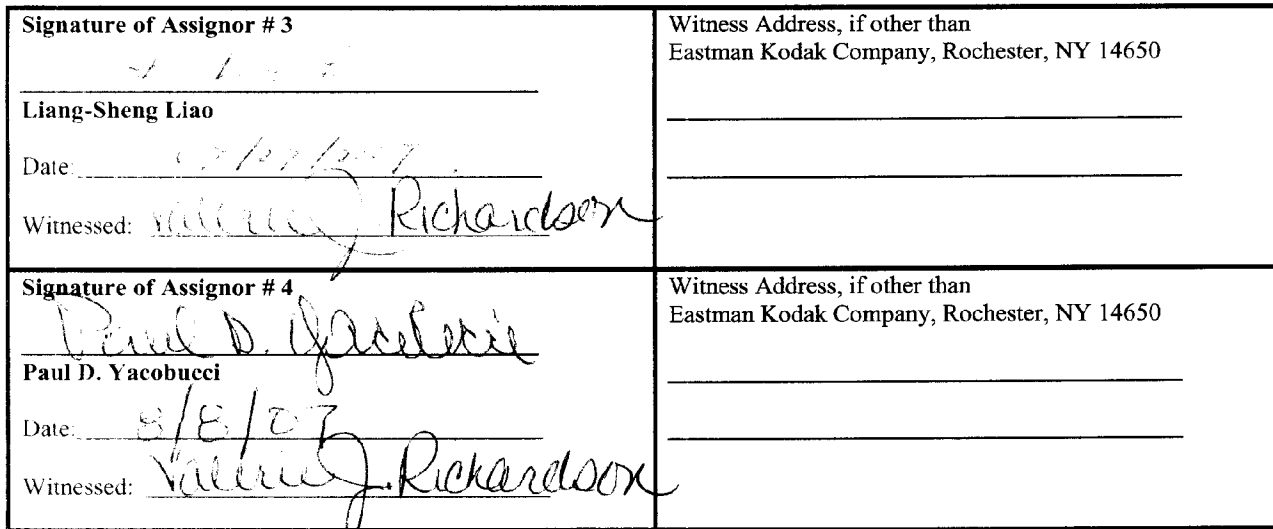 Signature of Assignor # 3
Liang-Sheng Liao
Date:
Witnessed: Valerie J. Richardson
Witness Address, if other than
Eastman Kodak Company, Rochester, NY 14650
Signature of Assignor # 4
Paul D. Yacobucci
Paul D. Yacobucci
Date: 8/8/07
Witnessed: Valerie J. Richardson
Witness Address, if other than
Eastman Kodak Company, Rochester, NY 14650